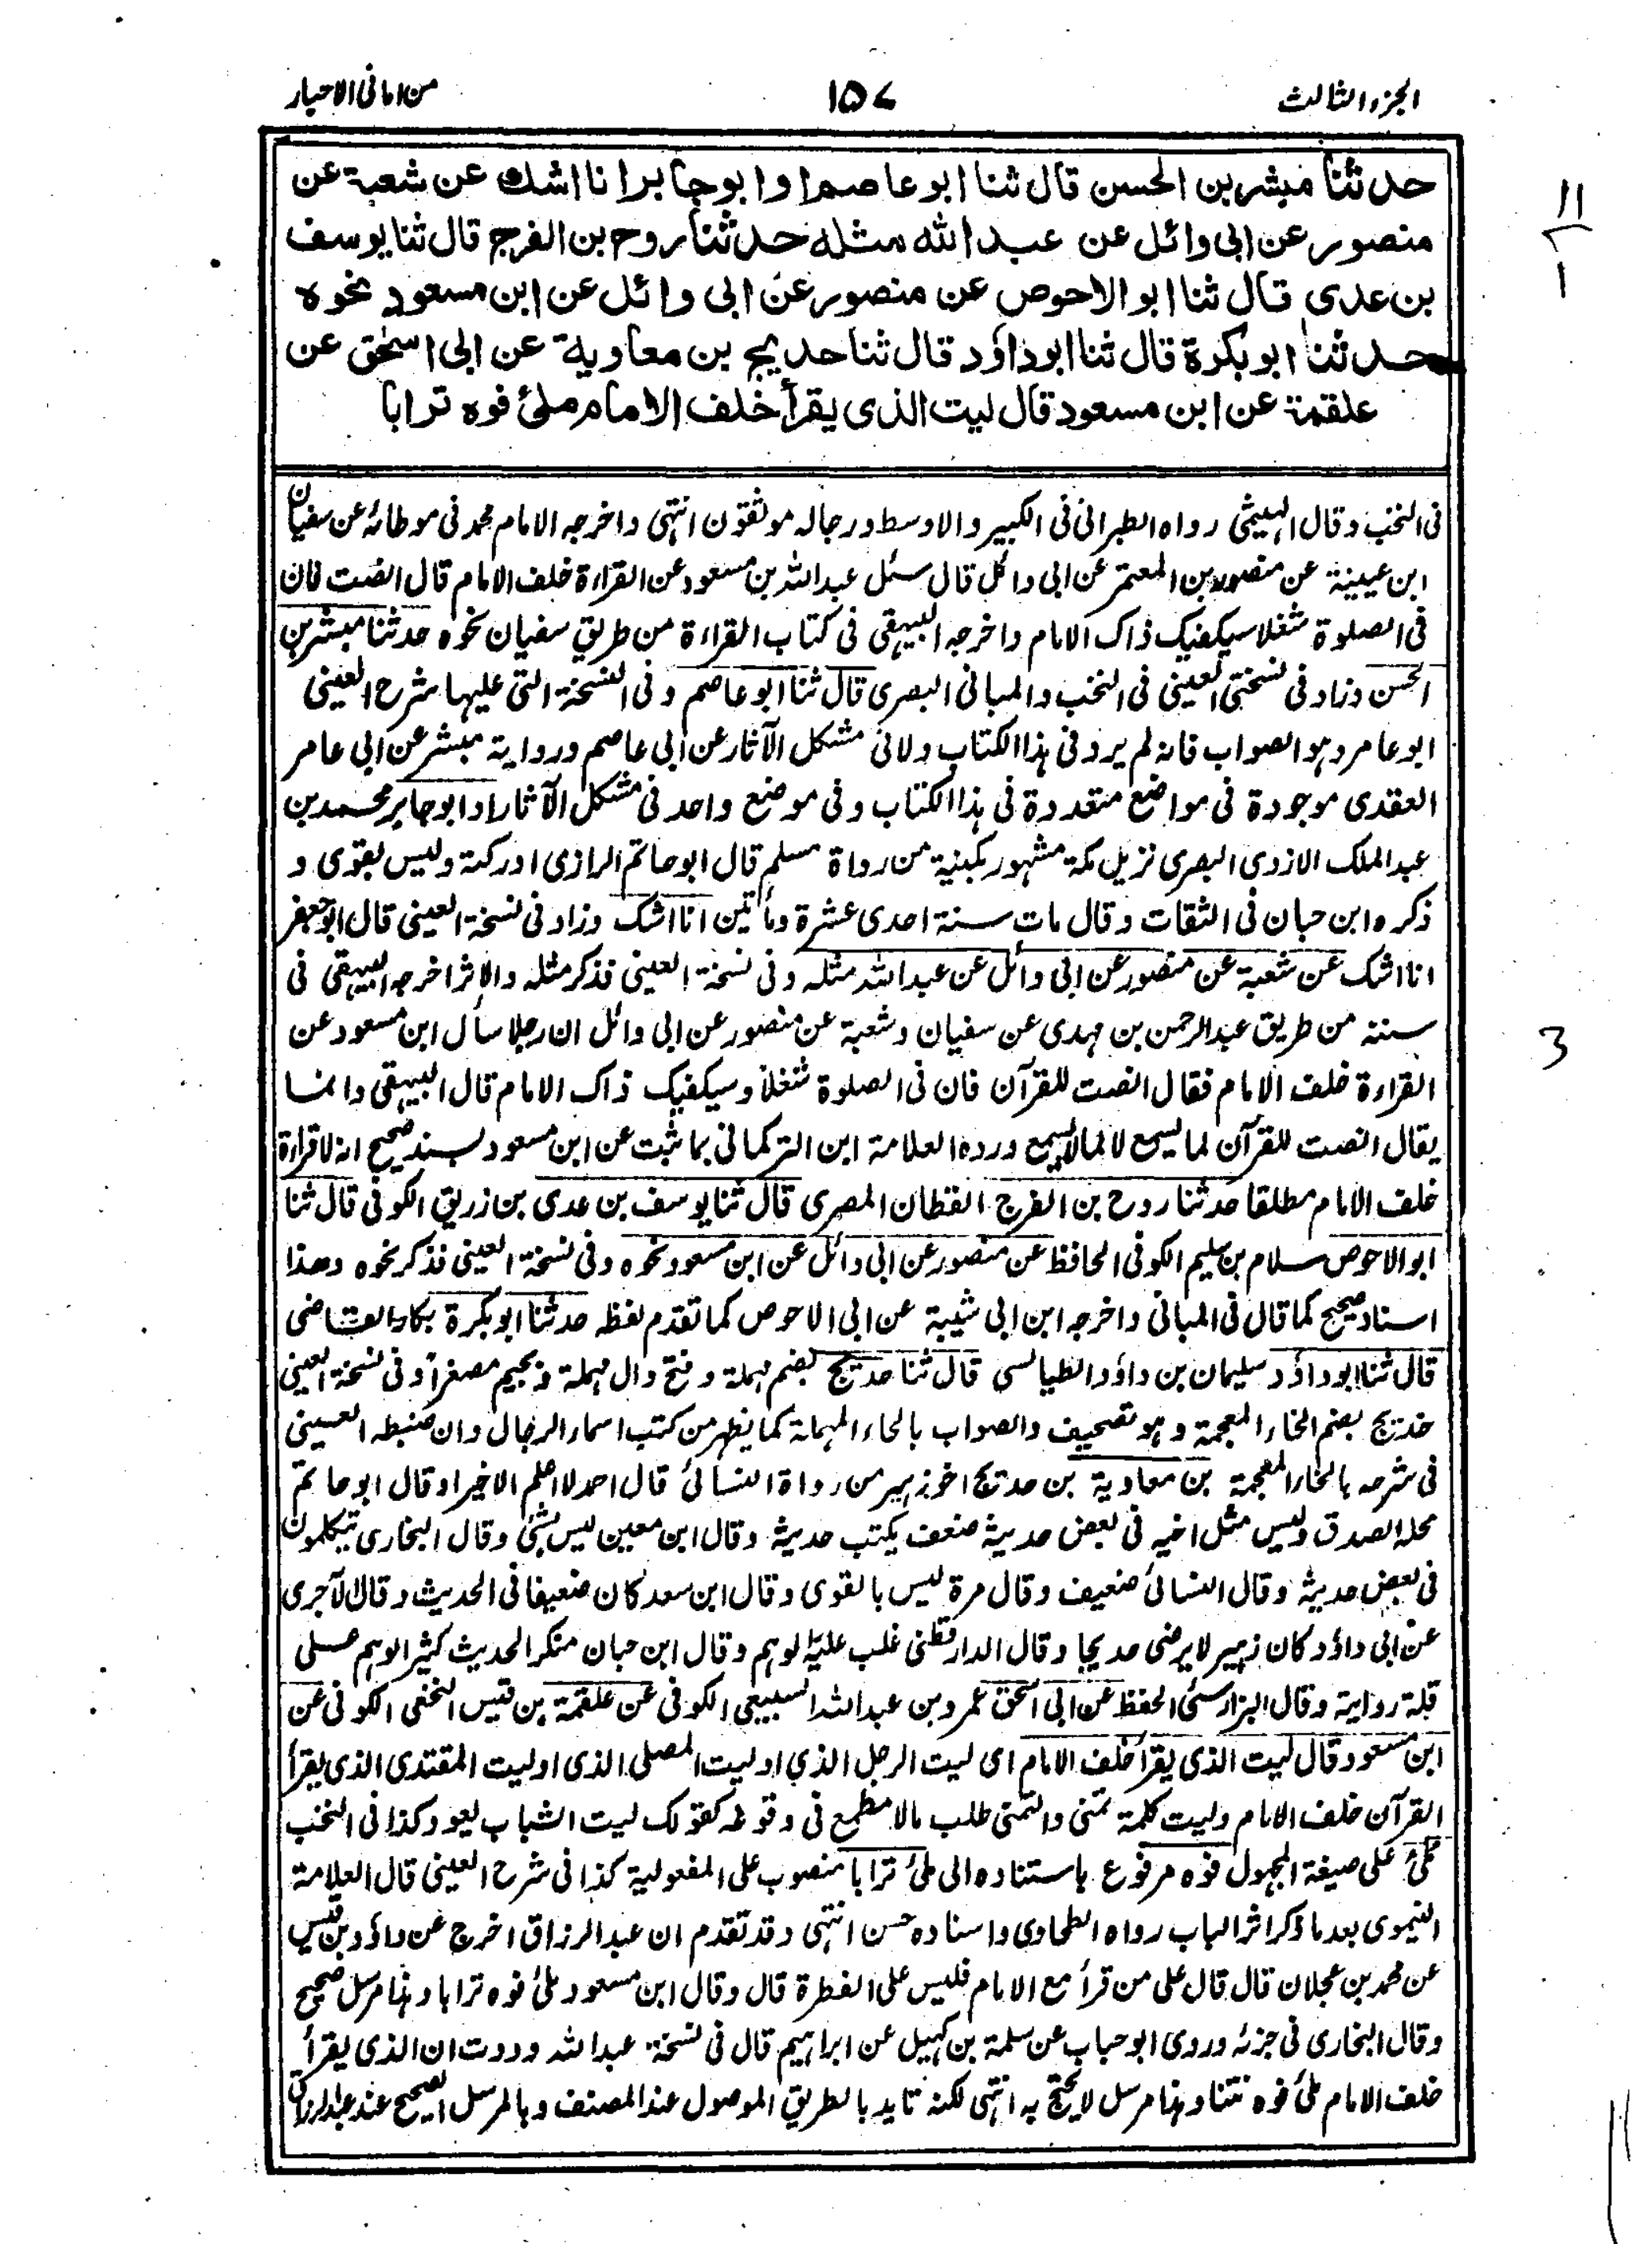 الجزء الثالث
١٥٧
من امانی الاحبار
حدثنا مبشر بن الحسن قال ثنا ابو عاصم او ابو جابر انا اشك عن شعبة عن
منصور عن ابی وائل عن عبد الله مثله حدثنا روح بن الفرج قال ثنا یوسف
بن عدی قال ثنا ابو الاحوص عن منصور عن ابی وائل عن ابن مسعود نحوه
حدثنا ابو بکرة قال ثنا ابو داؤد قال ثنا حدیج بن معاویة عن ابی اسحٰق عن
علقمة عن ابن مسعود قال لیت الذی یقرأ خلف الامام ملئ فوه ترابا
فی النخب وقال الہیثمی رواه الطبرانی فی الکبیر والاوسط ورجاله موثقون انتہی واخرجه الامام محمد فی موطائه عن سفیان
ابن عیینة عن منصور بن المعتمر عن ابی وائل قال سئل عبد اللہ بن مسعود عن القراءة خلف الامام قال انصت فان
فی الصلوة شغلا سیکفیک ذاک الامام واخرجه البیہقی فی کتاب القراءة من طریق سفیان نحوه حدثنا مبشر بن
الحسن وزاد فی نسختی العینی فی النخب والمبانی البصری قال ثنا ابو عاصم وفی النسخة التی علیہا شرح العینی
ابو عامر وہو الصواب فانه لم یرد فی ہذا الکتاب ولا فی مشکل الآثار عن ابی عاصم وروایة مبشر عن ابی عامر
العقدی موجودة فی مواضع متعددة فی ہذا الکتاب وفی موضع واحد فی مشکل الآثار او ابو جابر محمد بن
عبد الملک الازدی البصری نزیل مکة مشہور بکنیة من رواة مسلم قال ابو حاتم الرازی ادرکتہ ولیس بقوی و
ذکره ابن حبان فی الثقات وقال مات سنة احدی عشرة ومأتین انا اشک وزاد فی نسخة العینی قال ابو جعفر
انا اشک عن شعبة عن منصور عن ابی وائل عن عبد اللہ مثله وفی نسخة العینی فذکر مثله والاثر اخرجه البیہقی فی
سننه من طریق عبد الرحمن بن مہدی عن سفیان وشعبة عن منصور عن ابی وائل ان رجلا سأل ابن مسعود عن
القراءة خلف الامام فقال انصت للقرآن فان فی الصلوة شغلاً وسیکفیک ذاک الامام قال البیہقی وانما
یقال انصت للقرآن لما یسمع لا لما لا یسمع ورده العلامة ابن الترکمانی بما ثبت عن ابن مسعود بسند صحیح انه لا قراءة
خلف الامام مطلقا حدثنا روح بن الفرج القطان المصری قال ثنا یوسف بن عدی بن زریق الکوفی قال ثنا
ابو الاحوص سلام بن سلیم الکوفی الحافظ عن منصور عن ابی وائل عن ابن مسعود نحوه وفی نسخة العینی فذکر نحوه وهذا
اسناد صحیح کما قال فی المبانی واخرجه ابن ابی شیبة عن ابی الاحوص کما تقدم لفظه حدثنا ابو بکرة بکار القاضی
قال ثنا ابو داؤد سلیمان بن داؤد الطیالسی قال ثنا حدیج بضم مہملة وفتح دال مہملة وبجیم مصغراً وفی نسخة العینی
خدیج بضم الخاء المعجمة وہو تصحیف والصواب بالحاء المہملة کما یظہر من کتب اسماء الرجال وان ضبطه العینی
فی شرحه بالخاء المعجمة بن معاویة بن حدیج اخو زہیر من رواة النسائی قال احمد لا اعلم الا خیرا وقال ابو حاتم
محله الصدق ولیس مثل اخیه فی بعض حدیثه ضعف یکتب حدیثه وقال ابن معین لیس بشئ وقال البخاری یتکلمون
فی بعض حدیثه وقال النسائی ضعیف وقال مرة لیس بالقوی وقال ابن سعد کان ضعیفا فی الحدیث وقال الآجری
عن ابی داؤد کان زہیر لا یرضی حدیجا وقال الدارقطنی غلب علیه الوہم وقال ابن حبان منکر الحدیث کثیر الوہم علی
قلة روایة وقال البزار سئ الحفظ عن ابی اسحٰق عمرو بن عبد اللہ السبیعی الکوفی عن علقمة بن قیس النخعی الکوفی عن
ابن مسعود قال لیت الذی یقرأ خلف الامام ای لیت الرجل الذی او لیت المصلی الذی او لیت المقتدی الذی یقرأ
القرآن خلف الامام ولیت کلمة تمنی والتمنی طلب مالا مطمع فی وقوعه کقولک لیت الشباب یعود وکذا فی النخب
ملئ علی صیغة المجہول فوه مرفوع باستناده الی ملئ ترابا منصوب علی المفعولیة کذا فی شرح العینی قال العلامة
النیموی بعد ما ذکر اثر الباب رواه الطحاوی واسناده حسن انتہی وقد تقدم ان عبد الرزاق اخرج عن داؤد بن قیس
عن محمد بن عجلان قال قال علی من قرأ مع الامام فلیس علی الفطرة قال وقال ابن مسعود ملئ فوه ترابا وہذا مرسل صحیح
وقال البخاری فی جزئه وروی ابو حباب عن سلمة بن کہیل عن ابراہیم قال فی نسخة عبد اللہ وددت ان الذی یقرأ
خلف الامام ملئ فوه نتنا وہذا مرسل لا یحتج به انتہی لکنه تاید بالطریق الموصول عند المصنف وبالمرسل الصحیح عند عبد الرزاق